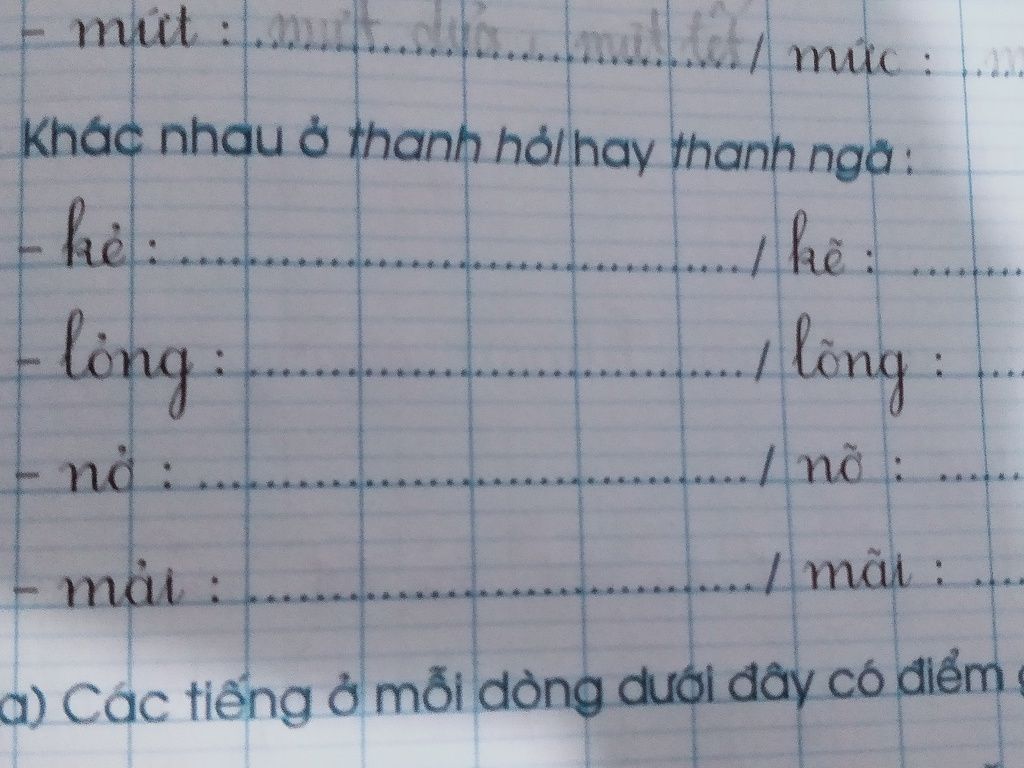 - mứt : mứt dừa, mứt tết / mức :
Khác nhau ở thanh hỏi hay thanh ngã :
- kẻ : / kẽ :
- lỏng : / lõng :
- nở : / nỡ :
- mải : / mãi :
a) Các tiếng ở mỗi dòng dưới đây có điểm